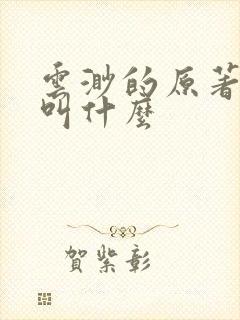 雲渺的原著
叫什麼
賀紫彰